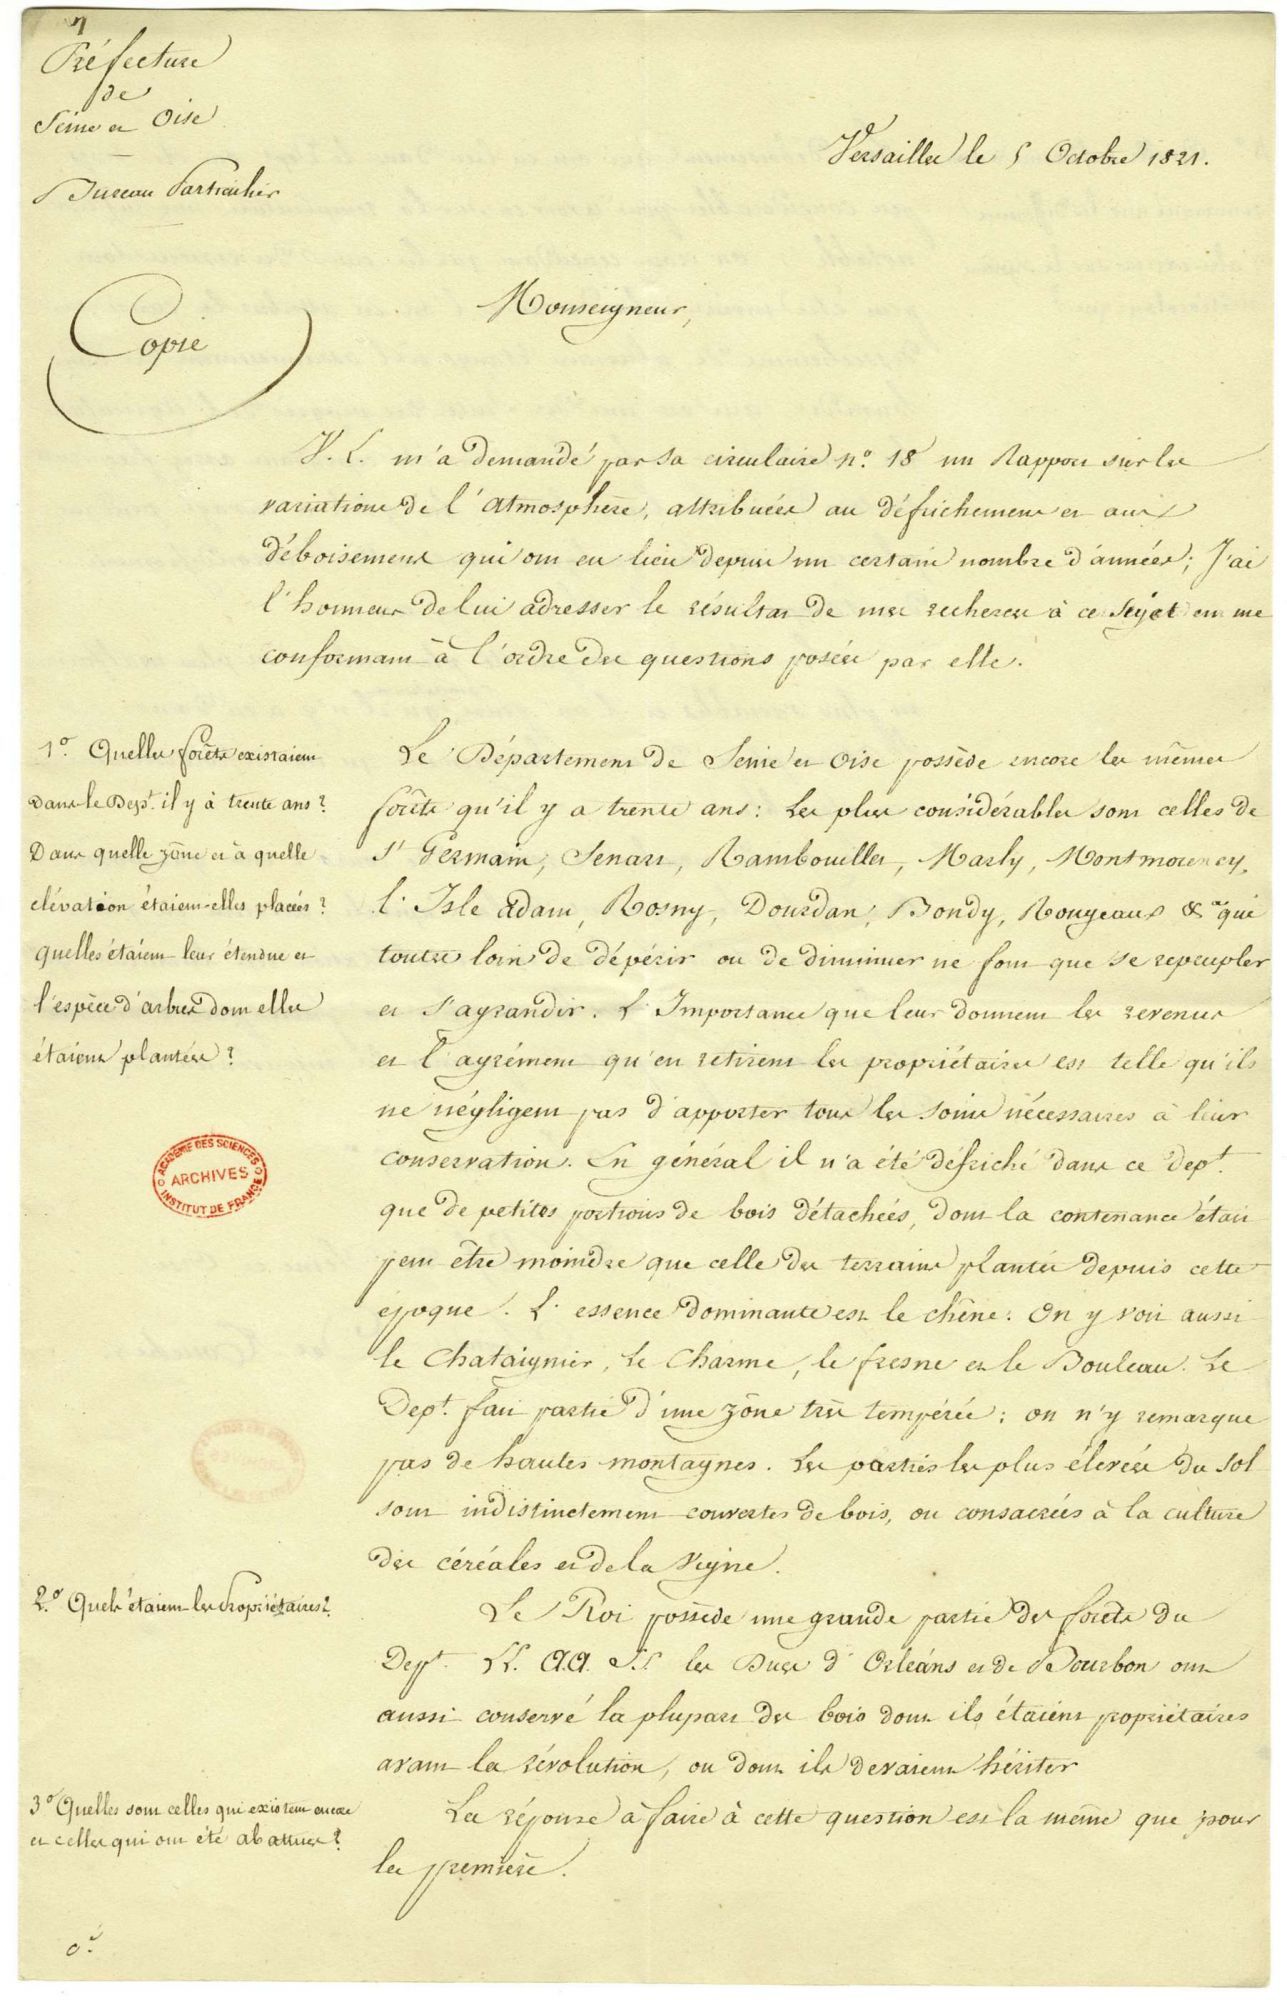 Préfecture
de
Seine et Oise
Bureau Particulier
Versailles le 5 Octobre 1821.
Copie
Monseigneur,
V. E. m'a demandé par sa circulaire n.° 18 un Rapport sur les
variations de l'Atmosphère, attribuées au défrichement et aux
déboisement qui ont eu lieu depuis un certain nombre d'années; J'ai
l'honneur de lui adresser le résultat de mes recherces à ce Sujet en me
conformant à l'ordre des questions posées par elle.
1° Quelles forêts existaient
dans le Depᵗ. il y à trente ans?
Dans quelle zône et à quelle
élévation étaient-elles placées?
quelles étaient leur étendue et
l'espèce d'arbres dont elles
étaient plantées?
Le Département de Seine et Oise possède encore les mêmes
forêts qu'il y a trente ans: Les plus considérables sont celles de
Sᵗ Germain, Senart, Rambouillet, Marly, Montmorency,
l'Isle Adam, Rosny, Dourdan, Bondy, Rougeaux &ᵃ qui
toutes loin de dépérir ou de diminuer ne font que se repeupler
et s'agrandir. L'Importance que leur donnent les revenus
et l'agrément qu'en retirent les propriétaires est telle qu'ils
ne négligent pas d'apporter tous les soins nécessaires à leur
conservation. En général il n'a été défriché dans ce depᵗ.
que de petites portions de bois détachées, dont la contenance était
peut être moindre que celle des terrains plantés depuis cette
époque. L'essence dominante est le chêne: On y voit aussi
le Chataignier, le Charme, le fresne et le Bouleau. Le
Depᵗ. fait partie d'une zône très tempérée; on n'y remarque
pas de hautes montagnes. Les parties les plus élevées du sol
sont indistinctement couvertes de bois, ou consacrées à la culture
des céréales et de la Vigne.
2.° Quels étaient les Propriétaires?
Le Roi possède une grande partie des forêts du
Depᵗ. LL. A.A. SS. les Ducs d'Orléans et de Bourbon ont
aussi conservé la plupart des bois dont ils étaient propriétaires
avant la révolution, ou dont ils devaient hériter
3° Quelles sont celles qui existent encore
et celles qui ont été abattues?
La réponse à faire à cette question est la même que pour
la première.
ACADÉMIE DES SCIENCES
ARCHIVES
INSTITUT DE FRANCE